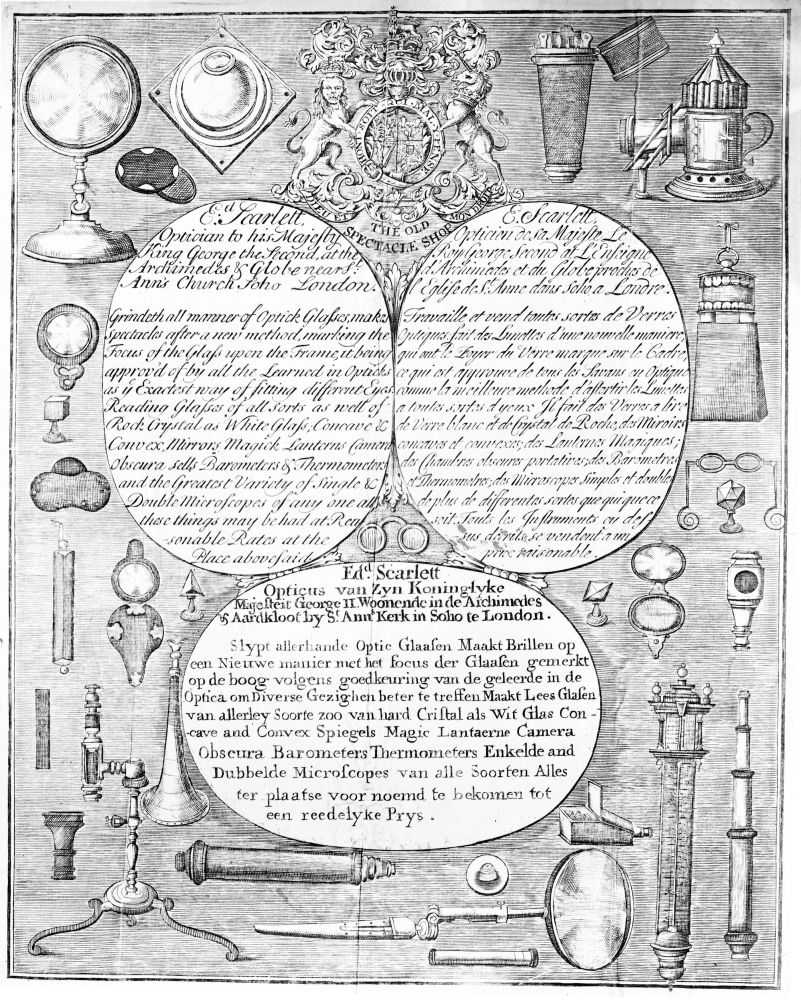 HONI SOIT QUI MAL Y PENSE
DIEU ET MON DROIT
THE OLD
SPECTACLE SHOP
E.d Scarlett,
Optician to his Majesty
King George the Second, at the
Archimedes & Globe near St.
Ann's Church Soho London.
Grindeth all manner of Optick Glaſses, makes
Spectacles after a new method, marking the
Focus of the Glaſs upon the Frame, it being
approv'd of by all the Learned in Opticks
as ye Exactest way of fitting different Eyes
Reading Glaſses of all Sorts as well of
Rock Crystal as White Glaſs, Concave &
Convex, Mirrors Magick Lanterns Camera
Obscura sells Barometers & Thermometers
and the Greatest Variety of Single &
Double Microſcopes of any one all
these things may be had at Rea
sonable Rates at the
Place aboveſaid
E. Scarlett,
Opticien de sa Majeste, Le
Roy George Second, at L'Enseigne
d'Archimedes et du Globe proches de
l'Eglise de St. Anne dans Soho, a Londre.
Travaille et vend toutes sortes de Verres
Optiques, fait des Lunettes d'une nouvelle maniere,
qui ont le Foyer du Verre marque sur le Cadre,
ce qui est approuve de tous les Savans en Optique
comme la meilleure methode d'assortir les Lunettes
a toutes sortes d'yeux. Il fait des Verres a lire
de Verre blanc et de Crystal de Roche, des Miroirs
concaves et convexes; des Lanternes Magiques;
des Chambres obscures portatives; des Barometres
et Thermometres; des Microscopes Simples et doubles
de plus de differentes sortes que qui que ce
soit. Touts les Inſtruments cy deſ
sus decrits se vendent a un
prix raisonable.
Edd. Scarlett
Opticus van Zyn Koninglyke
Majeſteit George II. Woonende in de Archimedes
& Aardkloot by St. Anns Kerk in Soho te London.
Slypt allerhande Optic Glaaſen Maakt Brillen op
een Nieuwe manier met het focus der Glaaſen gemerkt
op de boog volgens goedkeuring van de geleerde in de
Optica om Diverse Gezighen beter te treffen Maakt Lees Glaſen
van allerley Soorte zoo van hard Criſtal als Wit Glas Con-
-cave and Convex Spiegels Magic Lantaerne Camera
Obscura Barometers Thermometers Enkelde and
Dubbelde Microſcopes van alle Soorten Alles
ter plaatse voor noemd te bekomen tot
een reedelyke Prys.